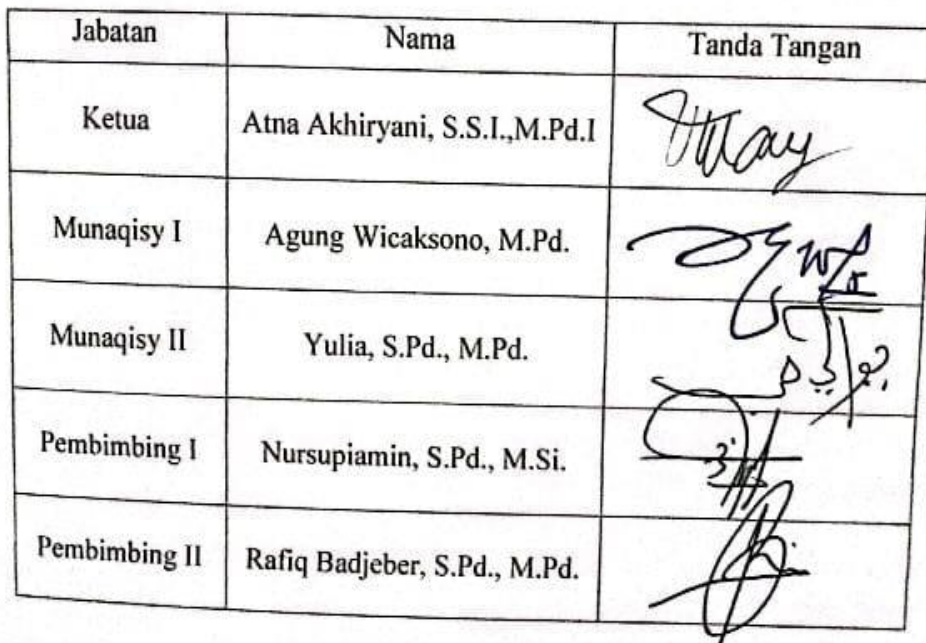 Jabatan Nama Tanda Tangan
Ketua Atna Akhiryani, S.S.I.,M.Pd.I
Munaqisy I Agung Wicaksono, M.Pd.
Munaqisy II Yulia, S.Pd., M.Pd.
Pembimbing I Nursupiamin, S.Pd., M.Si.
Pembimbing II Rafiq Badjeber, S.Pd., M.Pd.